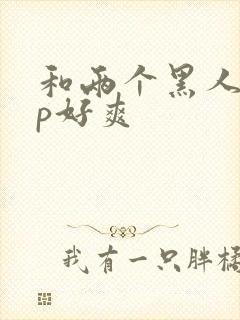 和两个黑人
p好爽
我有一只胖橘